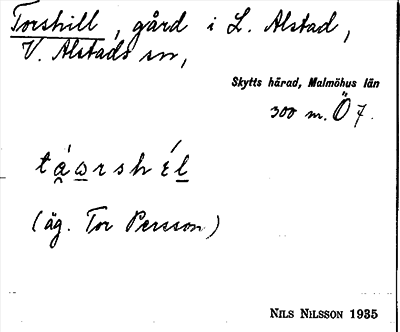 Torshill, gård i L. Alstad,
V. Alstads sn,
Skytts härad, Malmöhus län
300 m. Ö 7.
táωrshɛ́l
(äg. Tor Persson)
NILS NILSSON 1935